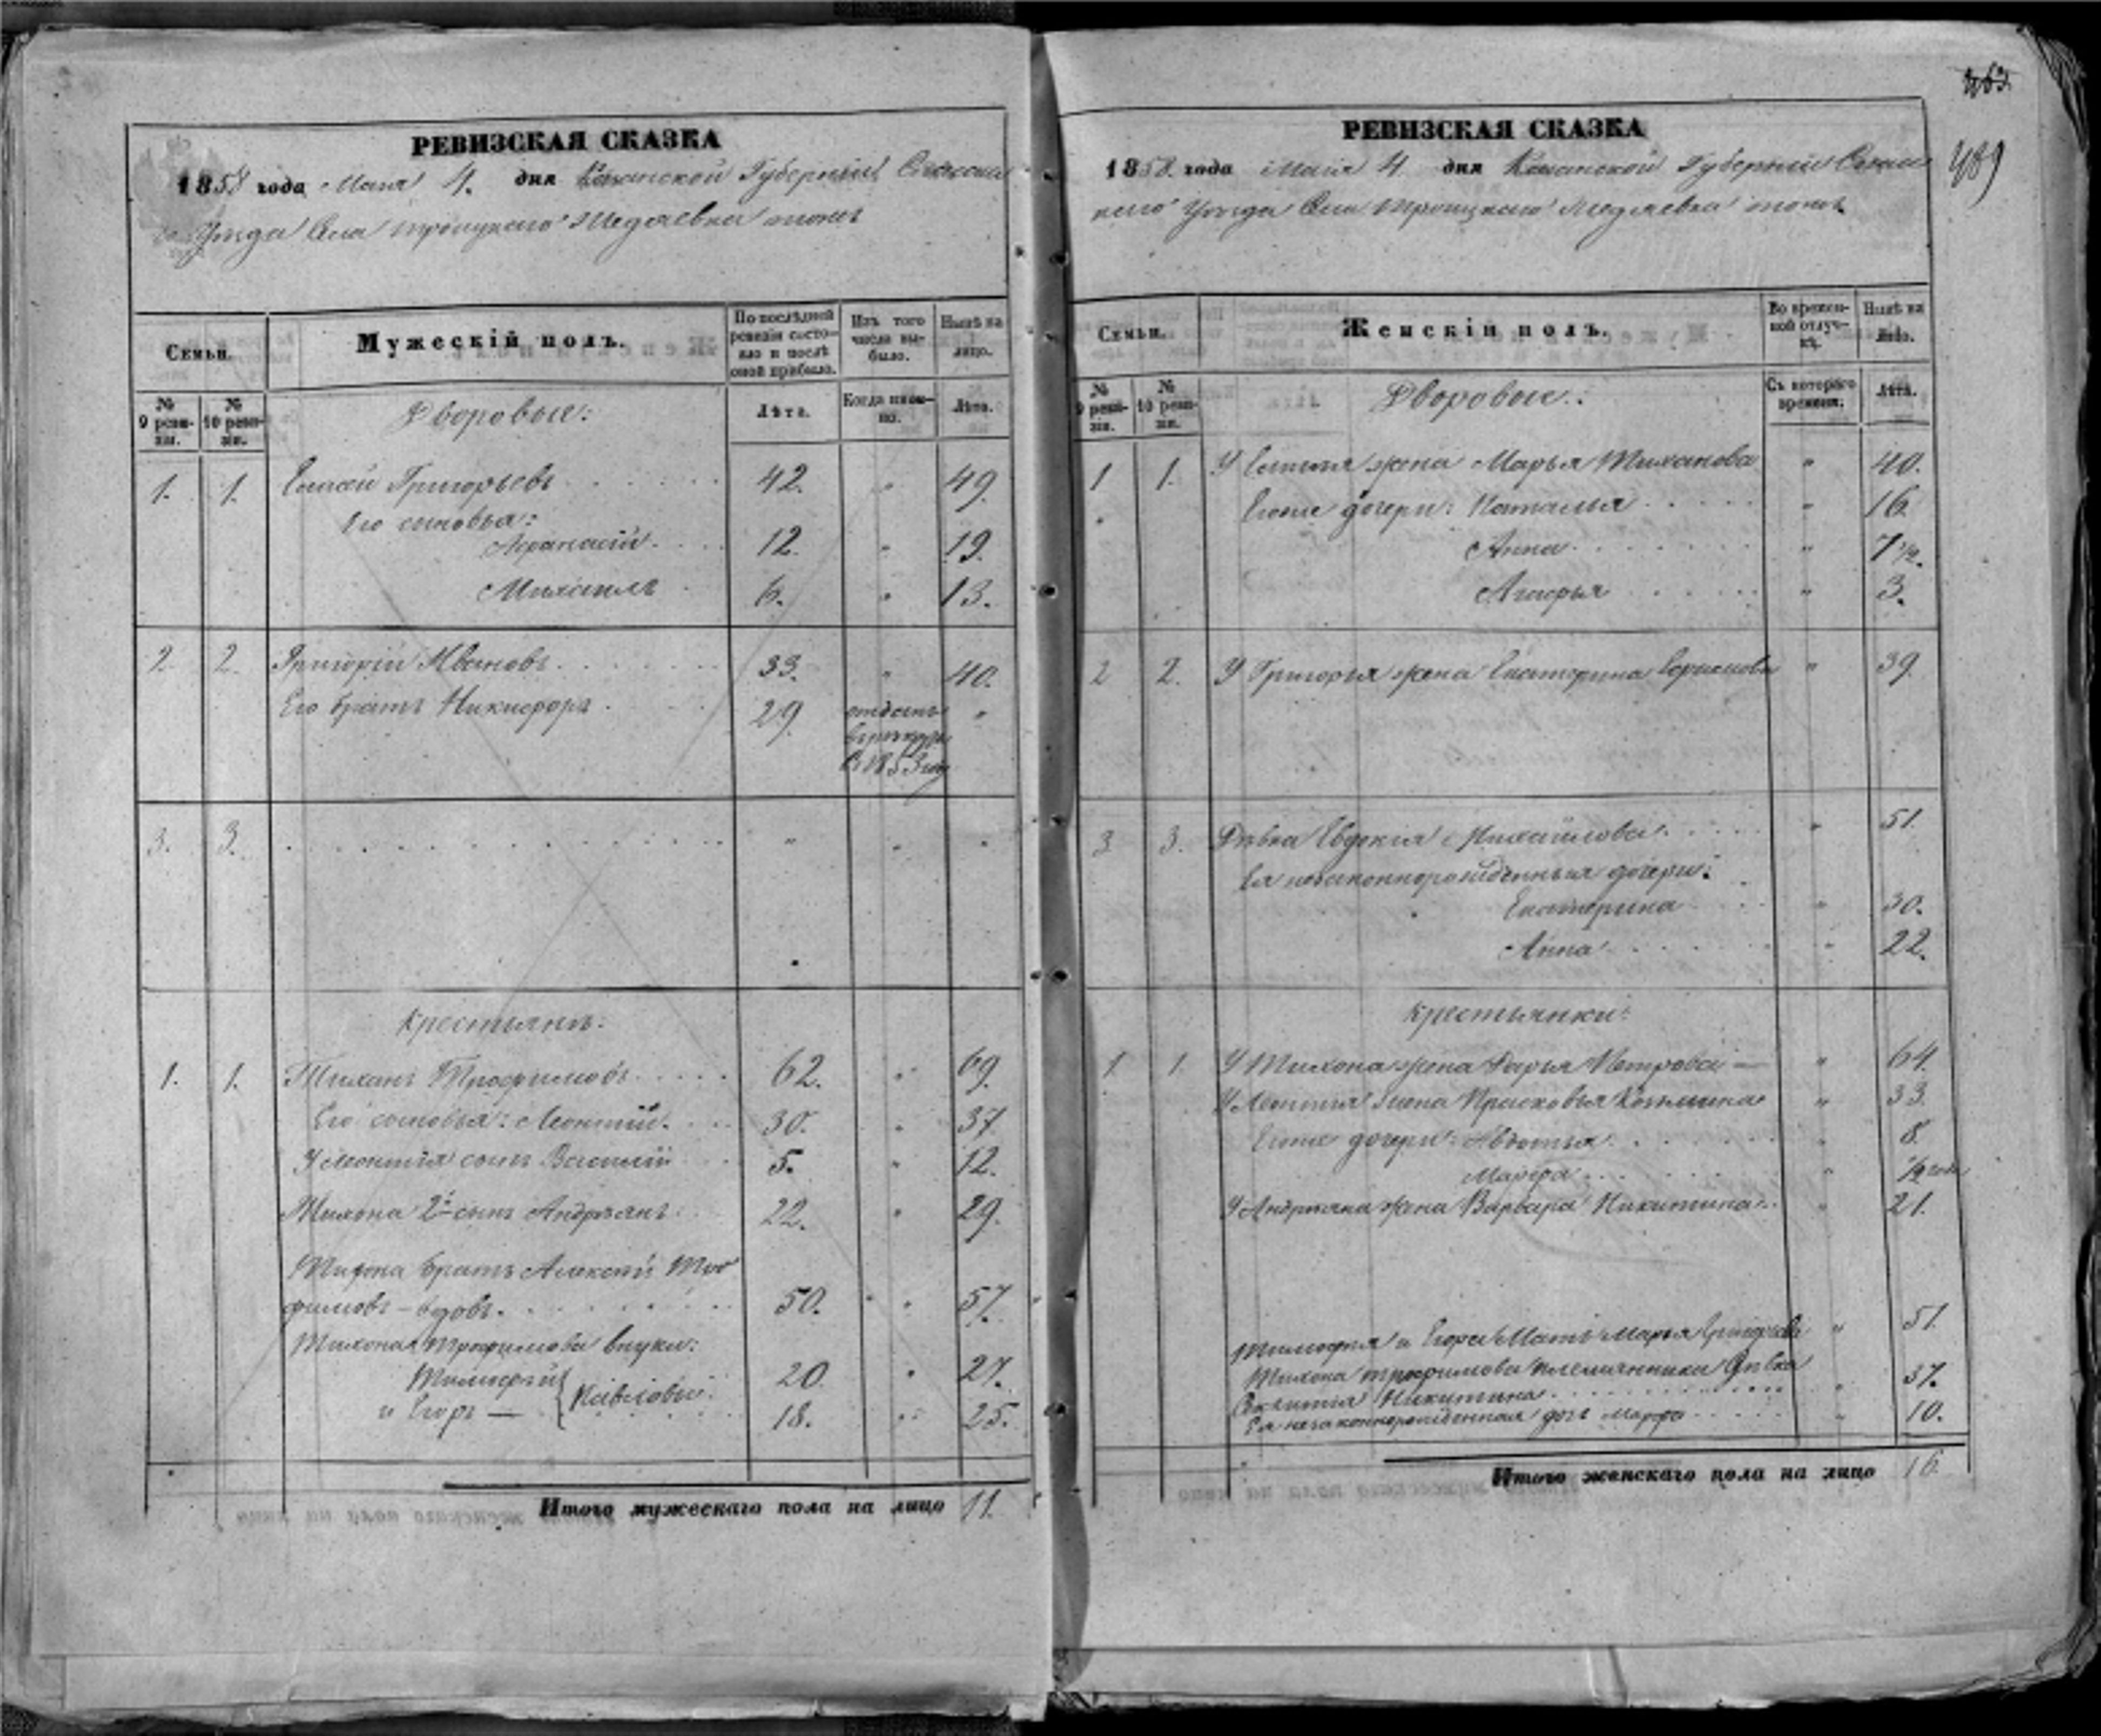 263.
489
РЕВИЗСКАЯ СКАЗКА
1858 года Маія 4. дня Казанской Губерніи Спасска
го Уѣзда Села Троицкаго Медаевка тожъ
Семьи.
Мужескій полъ.
По послѣдней ревизіи состояло и послѣ оной прибыло.
Изъ того числа выбыло.
Нынѣ на лицо.
№ 9 ревизіи.
№ 10 ревизіи.
Дворовые:
Лѣта.
Когда именно.
Лѣта.
1. 1. Елисей Григорьевъ 42. " 49.
Его сыновья:
Афанасій 12. " 19.
Михаилъ 6. " 13.
2 2 Григорій Ивановъ 33. " 40.
Его братъ Никифоръ 29 отданъ "
въ рекруты
въ 1853 году
3. 3. " " "
Крестьяне:
1. 1. Тихонъ Трофимовъ 62. " 69.
Его сыновья: Леонтій 30. " 37.
У Леонтія сынъ Василій 5. " 12.
Тихона 2й сынъ Андреянъ 22. " 29.
Тихона братъ Алексѣй Тро
фимовъ – вдовъ. 50. " 57.
Тихона Трофимова внуки:
Тимофей 20. " 27.
и Егоръ — { Павловы: 18. " 25.
Итого мужескаго пола на лицо 11.
РЕВИЗСКАЯ СКАЗКА
1858 года Маія 4 дня Казанской Губерніи Спас
скаго Уѣзда Села Троицкаго Медаевка тожъ
Семьи.
Женскій полъ.
Во временной отлучкѣ.
Нынѣ на лицо.
№ 9 ревизіи.
№ 10 ревизіи.
Дворовые:
Съ котораго времени.
Лѣта.
1 1. У Елисея жена Марья Тиханова " 40.
Его дочери: Наталья " 16
Анна " 7½.
Агафья " 3.
2 2. У Григорья жена Екатерина " 39
3 3. Дѣвка Евдокія Михайлова " 51.
Ея незаконнорожденныя дочери:
Екатерина " 30.
Анна " 22.
Крестьянки:
1 1 У Тихона жена Дарья Петрова — " 64.
У Леонтія жена Прасковья Козьмина " 33.
дочери: Авдотья " 8.
Марфа " ½ года
У Андреяна жена Варвара Никитина " 21.
Тимофея и Егора Мать Марья Григорьева " 51.
Тихона Трофимова племянница дѣвка
Никитина " 37.
Ея незаконнорожденная дочь Марфа " 10.
Итого женскаго пола на лицо 16.